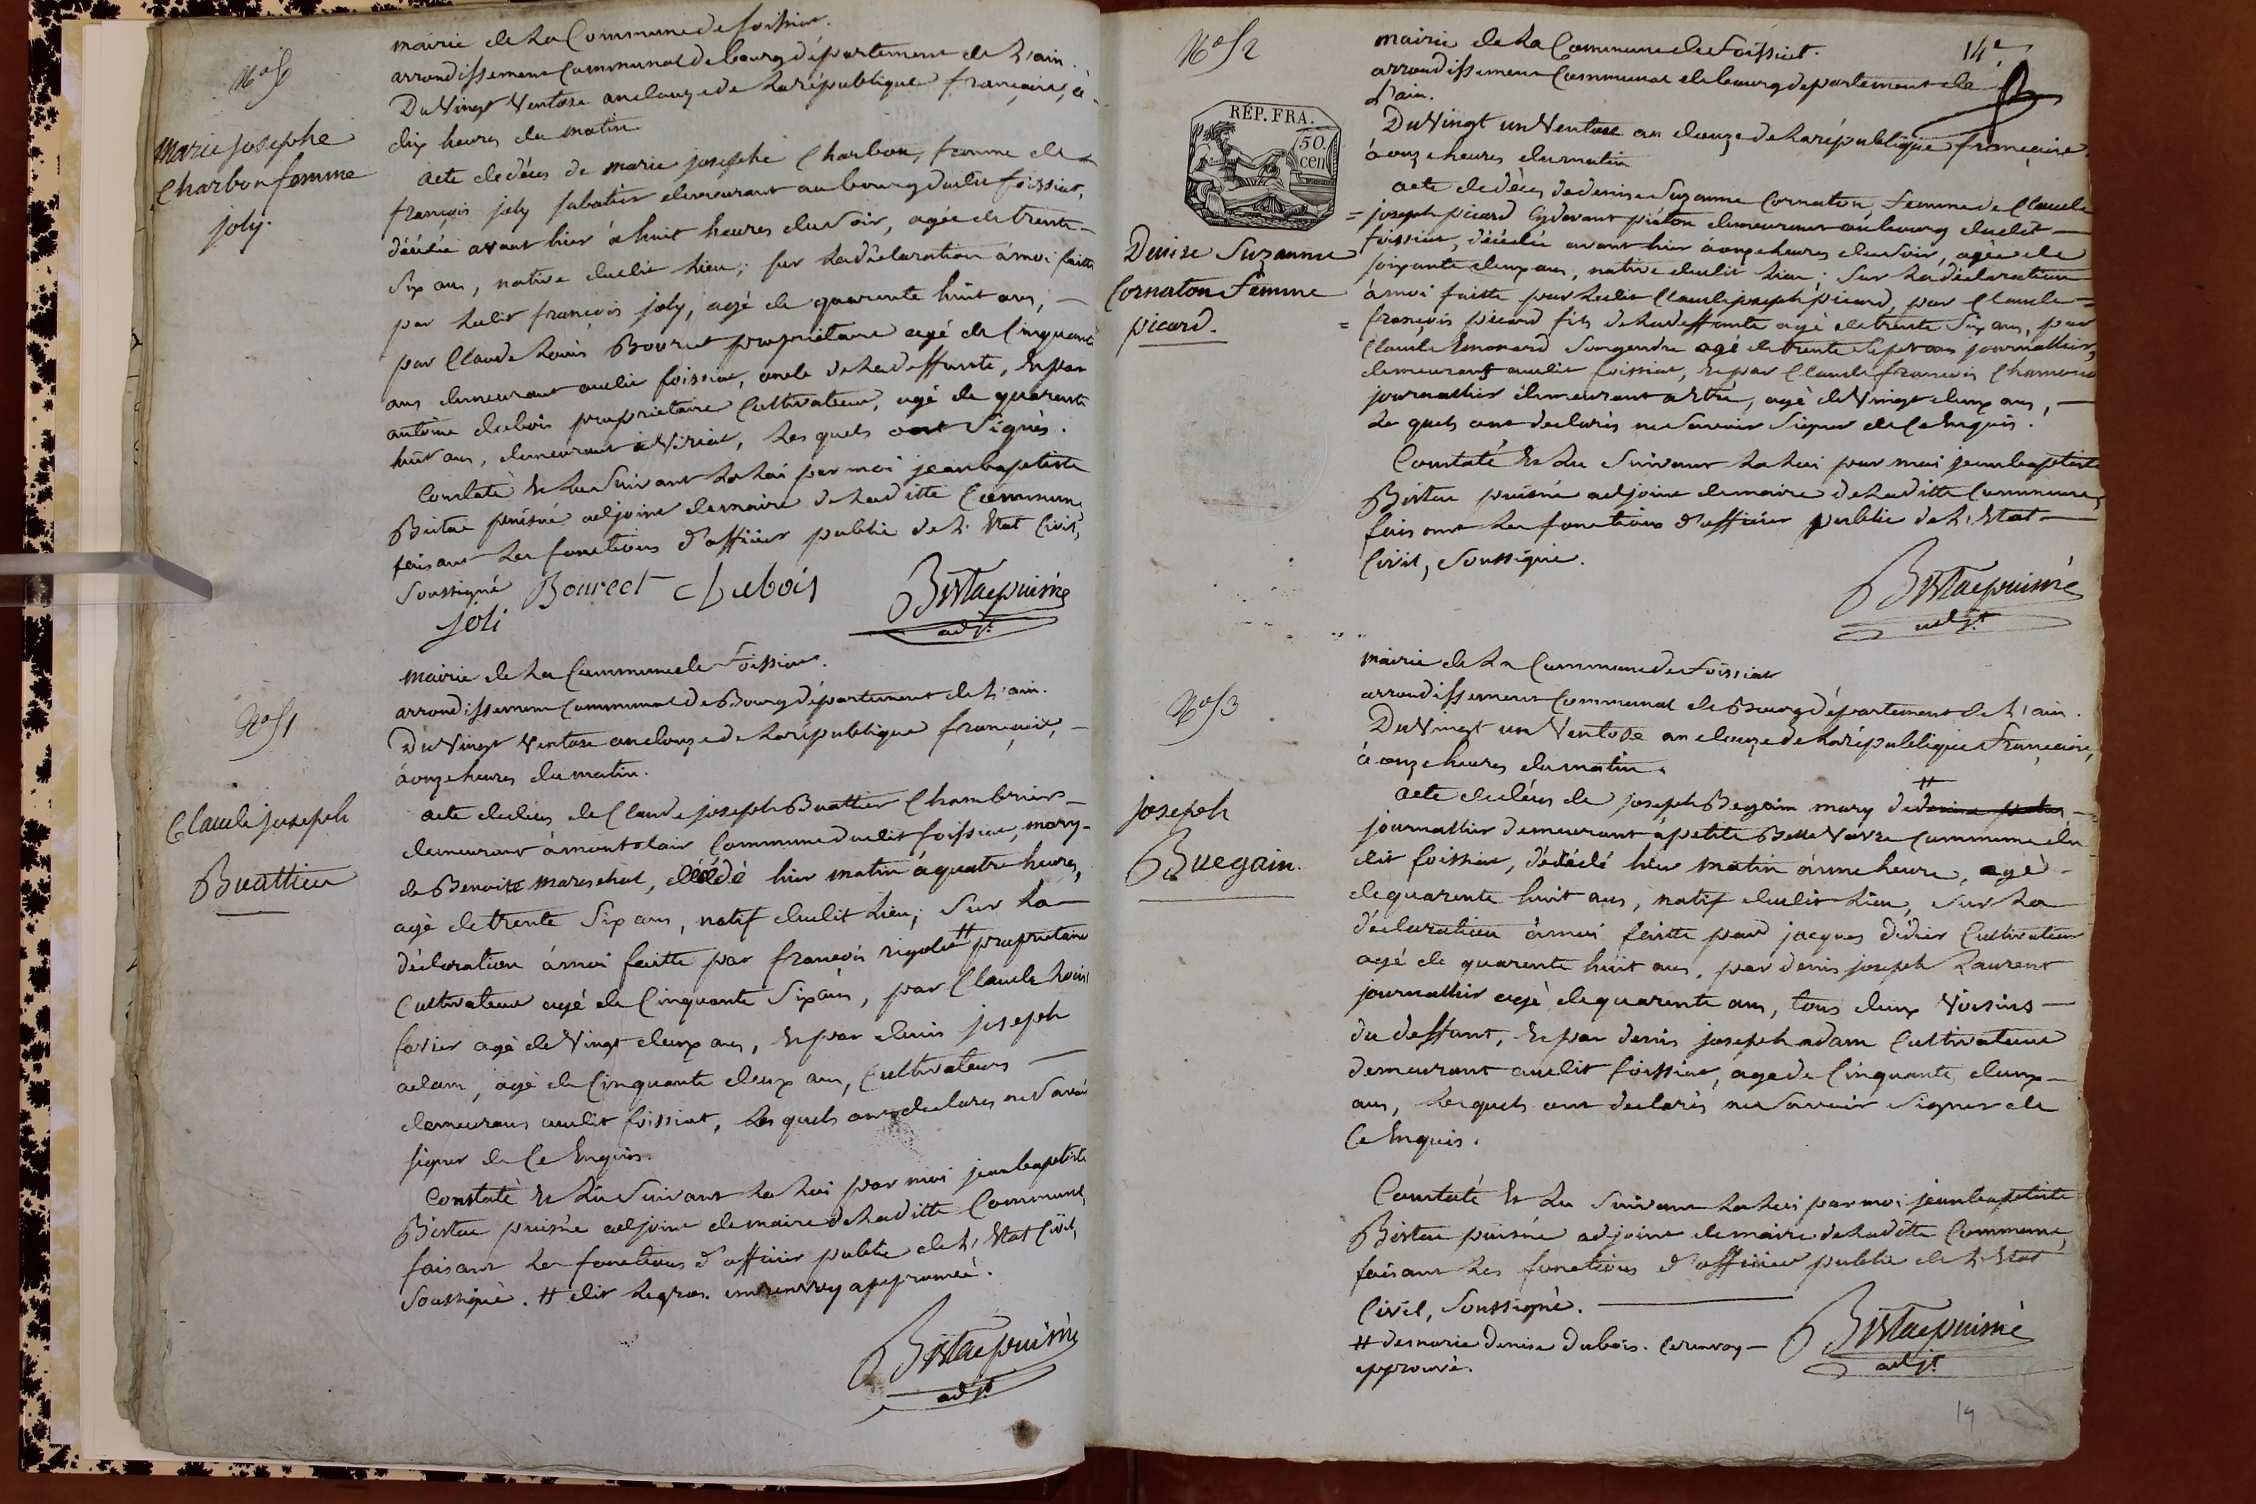 N.o 50
Marie josephe
Charbon femme
joly.
mairie de La Commune de foissiat.
arrondissement Communal de bourg département de L'ain.
Du Vingt Ventose an douze de La république française, à
dix heures du matin.
acte de décés de marie josephe Charbon, femme de
françois joly sabotier demeurant au bourg dudit foissiat,
décédée avant hier à huit heures du soir, agée de trente
Six ans, native dudit Lieu; sur La déclaration à moi faitte
par Ledit françois joly, agé de quarante huit ans,
par Claude Louis Bouret propriétaire agé de Cinquante
ans demeurant audit foissiat, oncle de La deffunte, Et par
antoine dubois propriétaire Cultivateur, agé de quarante
huit ans, demeurant à Viriat, Les quels ont Signés.
Constaté Et Lu Suivant La Loi par moi jean baptiste
Bistac puisné adjoint du maire de Laditte Commune
faisant Les fonctions d'officier public de L'Etat Civil,
Soussigné Bourect Dubois Bistac puisné
joli adjt
N.o 51
Claude joseph
Buattier
mairie de La Commune de foissiat.
arrondissement Communal de Bourg département de L'ain.
Du Vingt Ventose an douze de La république française,
à onze heures du matin.
acte de décés de Claude joseph Buattier Chambrier
demeurant à montclair Commune dudit foissiat, mary
de Benoite mareschal, décédé hier matin à quatre heures,
agé de trente Six ans, natif dudit Lieu; Sur La
déclaration à moi faitte par françois rigolet # propriétaire
Cultivateur agé de Cinquante Six ans, par Claude Louis
favier agé de Vingt deux ans, Et par denis joseph
adam, agé de Cinquante deux ans, Cultivateurs
demeurans audit foissiat, Les quels ont déclarés ne Savoir
signer de Ce Enquis.
Constaté Et Lu Suivant La Loi par moi jean baptiste
Bistac puisné adjoint du maire de Laditte Commune,
faisant Les fonctions d'officier public de L'Etat Civil,
Soussigné. # dit Legros. un renvoy approuvé.
Bistac puisné
adjt
14e
N.o 52
RÉP. FRA.
50.
cen
Denise Suzanne
Cornaton Femme
picard.
mairie de La Commune de foissiat.
arrondissement Communal de bourg département de
L'ain.
Du Vingt un Ventose an douze de La république française
à onze heures du matin
acte de décès de denise Suzanne Cornaton, Femme de Claude
= joseph picard Cydevant piéton demeurant au bourg dudit
foissiat, décédée avant hier à onze heures du soir, agée de
soixante deux ans, native dudit Lieu; Sur La déclaration
à moi faitte par Ledit Claude joseph picard, par Claude =
= françois picard fils de La deffunte agé de trente Six ans, par
Claude Emonard Son gendre agé de trente Sept ans journallier,
demeurant audit foissiat, Et par Claude françois Chamond
journallier demeurant a Etré, agé de Vingt deux ans,
Les quels ont déclarés ne Savoir Signer de Ce Enquis.
Constaté Et Lu Suivant La Loi par moi jean baptiste
Bistac puisné adjoint du maire de Laditte Commune,
faisant Les fonctions d'officier public de L'Etat
Civil, Soussigné.
Bistac puisné
adjt
N.o 53
joseph
Buegain.
mairie de La Commune de foissiat
arrondissement Communal de Bourg département de L'ain.
Du Vingt un Ventose an douze de La république française,
à onze heures du matin.
acte de décés de joseph Begain mary de #
journallier demeurant à petite Belle Vavre Commune du
dit foissiat, décédé hier matin à une heure, agé
de quarante huit ans, natif dudit Lieu, Sur La
déclaration à moi faitte par jacques didier Cultivateur
agé de quarante huit ans, par denis joseph Laurent
journallier agé de quarante ans, tous deux Voisins
du deffunt, Et par denis joseph adam Cultivateur
demeurant audit foissiat, agé de Cinquante deux
ans, Lesquels ont déclarés ne Savoir Signer de
Ce Enquis.
Constaté Et Lu Suivant La Loi par moi jean baptiste
Bistac puisné adjoint du maire de Laditte Commune,
faisant Les fonctions d'officier public de L'Etat
Civil, Soussigné.
# de marie denise dubois. Ce renvoy
approuvé.
Bistac puisné
adjt
14